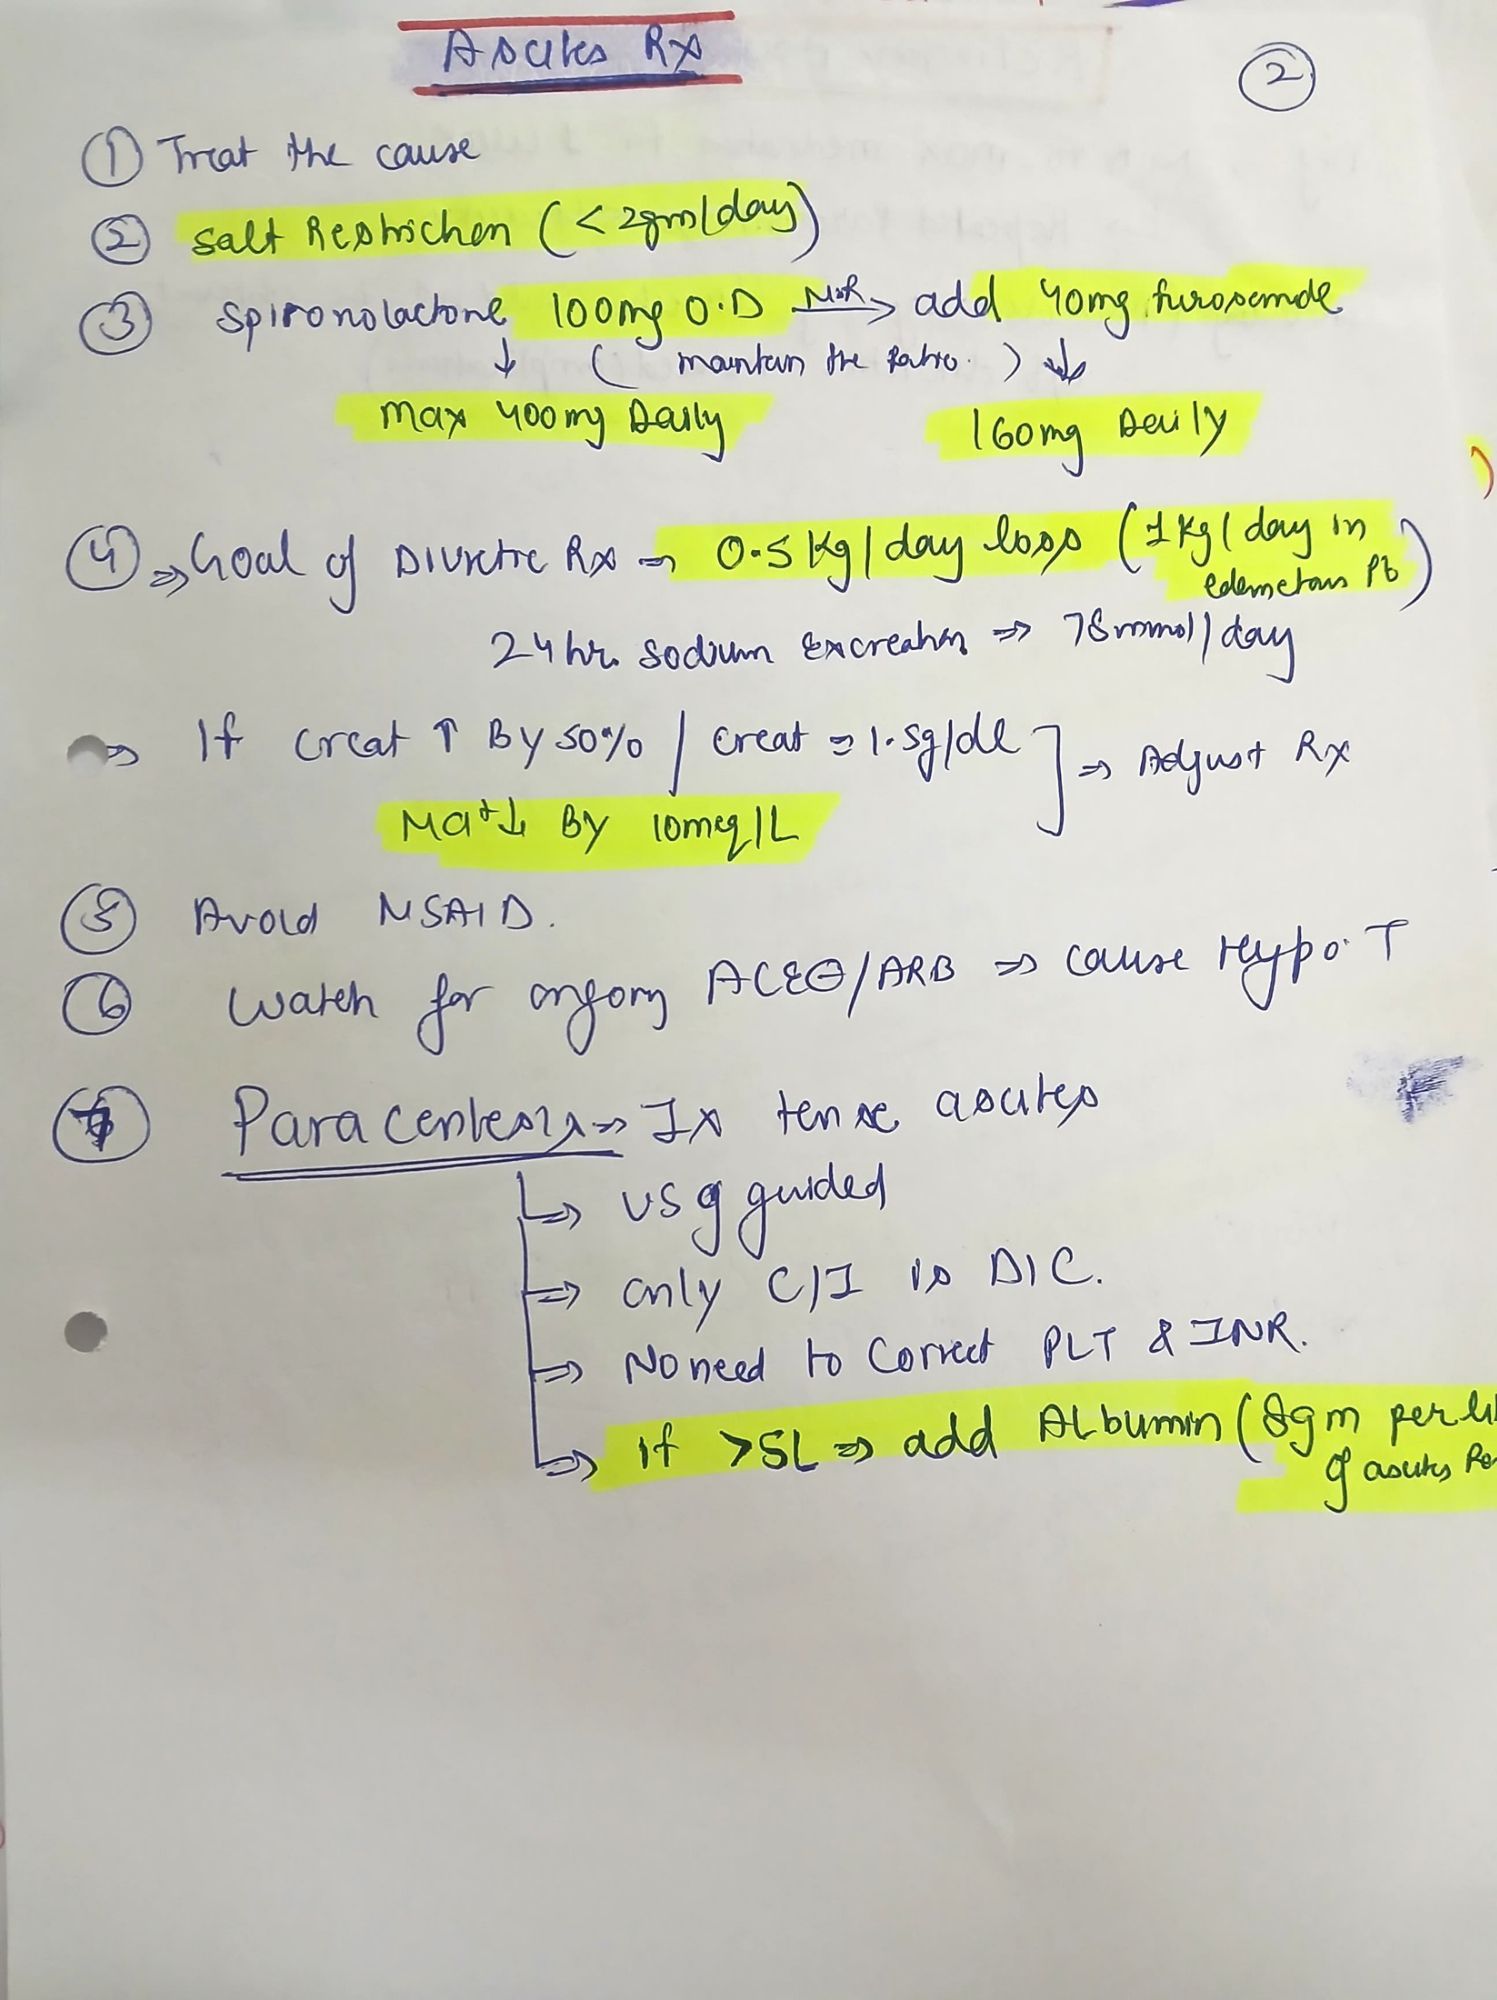 Ascites Rx
2
① Treat the cause
② Salt Restriction (<2gm/day)
③ Spironolactone 100mg O.D N.R → add 40mg furosemide
↓ ( maintain the Ratio. ) ↓
Max 400mg Daily 160mg Daily
④ ⇒ Goal of Diuretic Rx ⇒ 0.5 Kg/day loss (1 Kg/day in
edematous Pt)
24 hr. sodium excreation ⇒ 78 mmol/day
⇒ If Creat ↑ By 50% / Creat = 1.5g/dl ] ⇒ Adjust Rx
Na+ ↓ By 10meq/L
⑤ Avoid NSAID.
⑥ Watch for ongoing ACE⊖/ARB ⇒ cause Hypo.T
⑦ Paracentesis ⇒ In tense ascites
↳ USG guided
⇒ only C/I is DIC.
⇒ No need to Correct PLT & INR.
⇒ if >5L ⇒ add Albumin (8gm per
of ascites